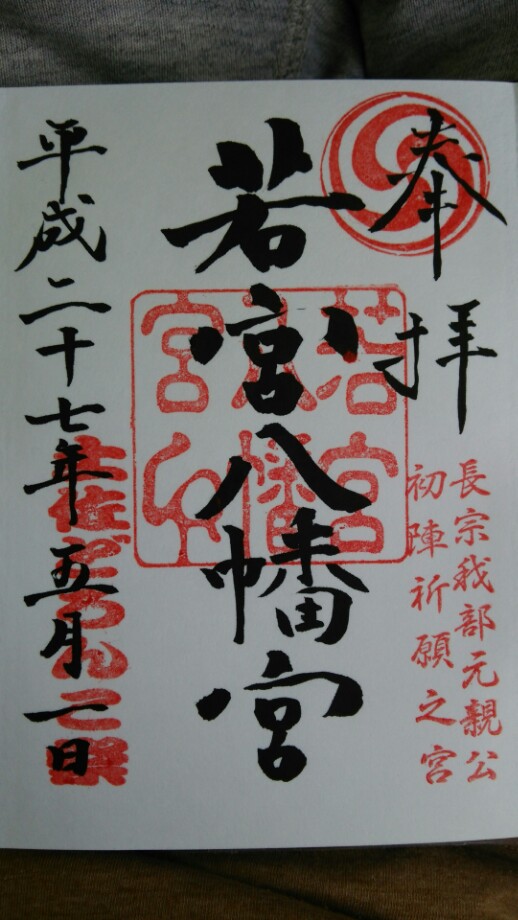 奉拝
長宗我部元親公
初陣祈願之宮
若宮八幡宮
若宮八幡宮印
平成二十七年五月一日
土佐どろんこ祭